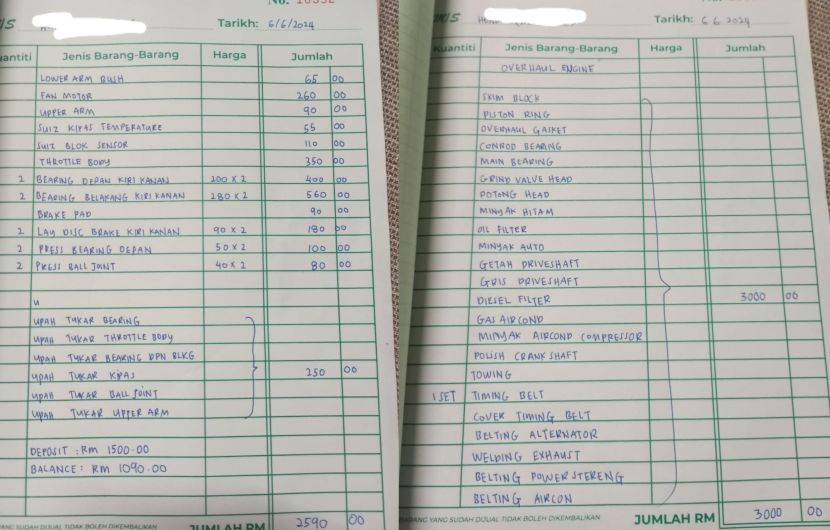 No. 10332
Tarikh: 6/6/2024
Jenis Barang-Barang Harga Jumlah
LOWER ARM BUSH 65 00
FAN MOTOR 260 00
UPPER ARM 90 00
SUIZ KIPAS TEMPERATURE 55 00
SUIZ BLOK SENSOR 110 00
THROTTLE BODY 350 00
2 BEARING DEPAN KIRI KANAN 200 X 2 400 00
2 BEARING BELAKANG KIRI KANAN 280 X 2 560 00
BRAKE PAD 90 00
2 LAY DISC BRAKE KIRI KANAN 90 X 2 180 00
2 PRESS BEARING DEPAN 50 X 2 100 00
2 PRESS BALL JOINT 40 X 2 80 00
U
UPAH TUKAR BEARING
UPAH TUKAR THROTTLE BODY
UPAH TUKAR BEARING DPN BLKG
UPAH TUKAR KIPAS 250 00
UPAH TUKAR BALL JOINT
UPAH TUKAR UPPER ARM
DEPOSIT : RM 1500.00
BALANCE : RM 1090.00
YANG SUDAH DIJUAL TIDAK BOLEH DIKEMBALIKAN JUMLAH RM 2590 00
Tarikh: 6 6 2024
Kuantiti Jenis Barang-Barang Harga Jumlah
OVERHAUL ENGINE
SKIM BLOCK
PISTON RING
OVERHAUL GASKET
CONROD BEARING
MAIN BEARING
GRIND VALVE HEAD
POTONG HEAD
MINYAK HITAM
OIL FILTER
MINYAK AUTO
GETAH DRIVESHAFT
GRIS DRIVESHAFT
DIESEL FILTER 3000 00
GAS AIRCOND
MINYAK AIRCOND COMPRESSOR
POLISH CRANKSHAFT
TOWING
1 SET TIMING BELT
COVER TIMING BELT
BELTING ALTERNATOR
WELDING EXHAUST
BELTING POWER STERENG
BELTING AIRCON
BARANG YANG SUDAH DIJUAL TIDAK BOLEH DIKEMBALIKAN JUMLAH RM 3000 00